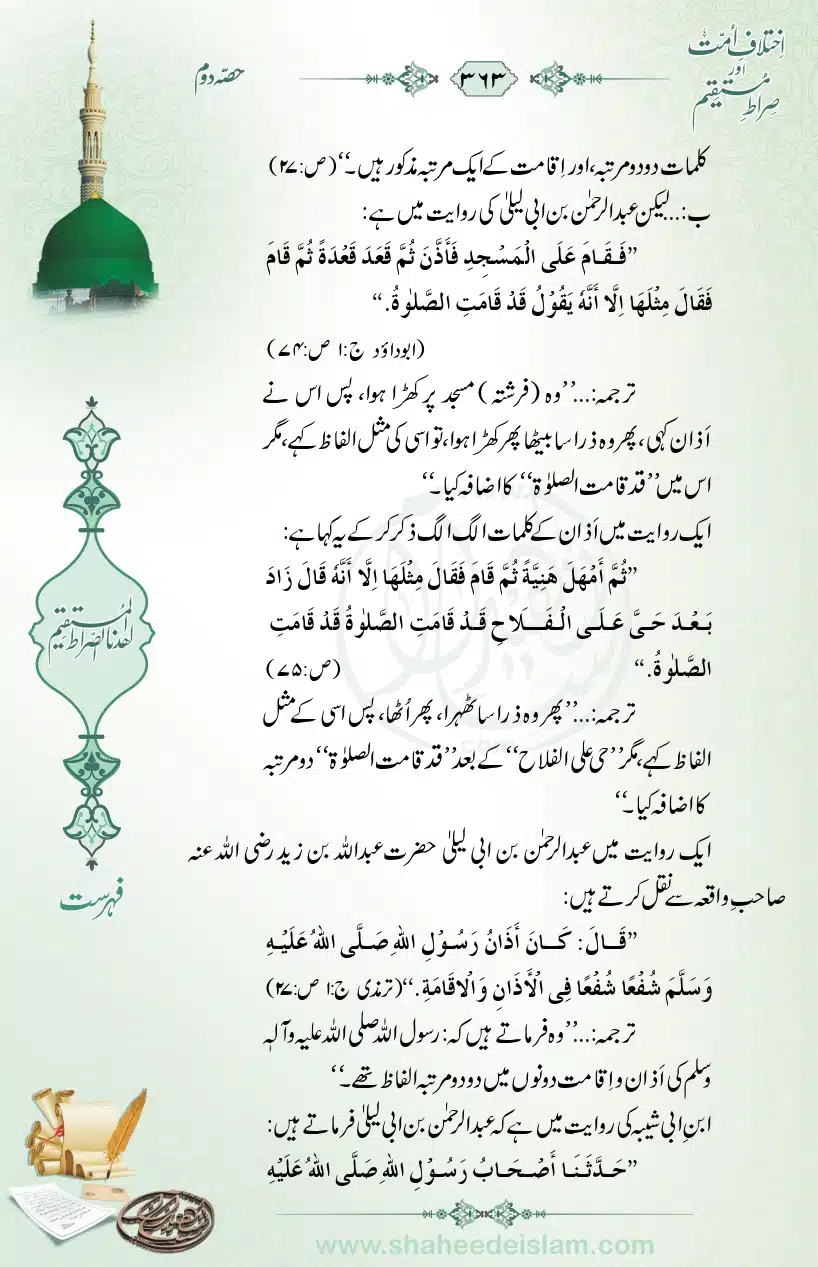 اِختلافِ اُمّت
اور
صِراطِ مُستقیم
۳۶۳
حصّہ دوم
کلمات دو دو مرتبہ، اور اِقامت کے ایک مرتبہ مذکور ہیں۔‘‘ (ص:۲۷)
ب:… لیکن عبدالرحمٰن بن ابی لیلیٰ کی روایت میں ہے:
’’فَقَامَ عَلَی الْمَسْجِدِ فَأَذَّنَ ثُمَّ قَعَدَ قَعْدَةً ثُمَّ قَامَ
فَقَالَ مِثْلَهَا اِلَّا أَنَّهٗ يَقُوْلُ قَدْ قَامَتِ الصَّلٰوةُ.‘‘
(ابوداؤد ج:۱ ص:۷۴)
ترجمہ:…’’وہ (فرشتہ) مسجد پر کھڑا ہوا، پس اس نے
اَذان کہی، پھر وہ ذرا سا بیٹھا پھر کھڑا ہوا، تو اسی کی مثل الفاظ کہے، مگر
اس میں ’’قد قامت الصلوٰة‘‘ کا اضافہ کیا۔‘‘
ایک روایت میں اَذان کے کلمات الگ الگ ذکر کرکے یہ کہا ہے:
’’ثُمَّ أَمْهَلَ هَنِيَّةً ثُمَّ قَامَ فَقَالَ مِثْلَهَا اِلَّا أَنَّهٗ قَالَ زَادَ
بَعْدَ حَیَّ عَلَی الْفَلَاحِ قَدْ قَامَتِ الصَّلٰوةُ قَدْ قَامَتِ
الصَّلٰوةُ.‘‘ (ص:۷۵)
ترجمہ:…’’پھر وہ ذرا سا ٹھہرا، پھر اُٹھا، پس اسی کے مثل
الفاظ کہے، مگر ’’حی علی الفلاح‘‘ کے بعد ’’قد قامت الصلوٰة‘‘ دو مرتبہ
کا اضافہ کیا۔‘‘
ایک روایت میں عبدالرحمٰن بن ابی لیلیٰ حضرت عبداللہ بن زید رضی اللہ عنہ
صاحبِ واقعہ سے نقل کرتے ہیں:
’’قَالَ: كَانَ أَذَانُ رَسُوْلِ اللهِ صَلَّی اللهُ عَلَيْهِ
وَسَلَّمَ شُفْعًا شُفْعًا فِی الْأَذَانِ وَالْاقَامَةِ.‘‘ (ترمذی ج:۱ ص:۲۷)
ترجمہ:…’’وہ فرماتے ہیں کہ: رسول اللہ صلی اللہ علیہ وآلہٖ
وسلم کی اَذان و اِقامت دونوں میں دو دو مرتبہ الفاظ تھے۔‘‘
ابنِ ابی شیبہ کی روایت میں ہے کہ عبدالرحمٰن بن ابی لیلیٰ فرماتے ہیں:
’’حَدَّثَنَا أَصْحَابُ رَسُوْلِ اللهِ صَلَّی اللهُ عَلَيْهِ
اهدنا الصراط المستقیم
فہرست
www.shaheedeislam.com